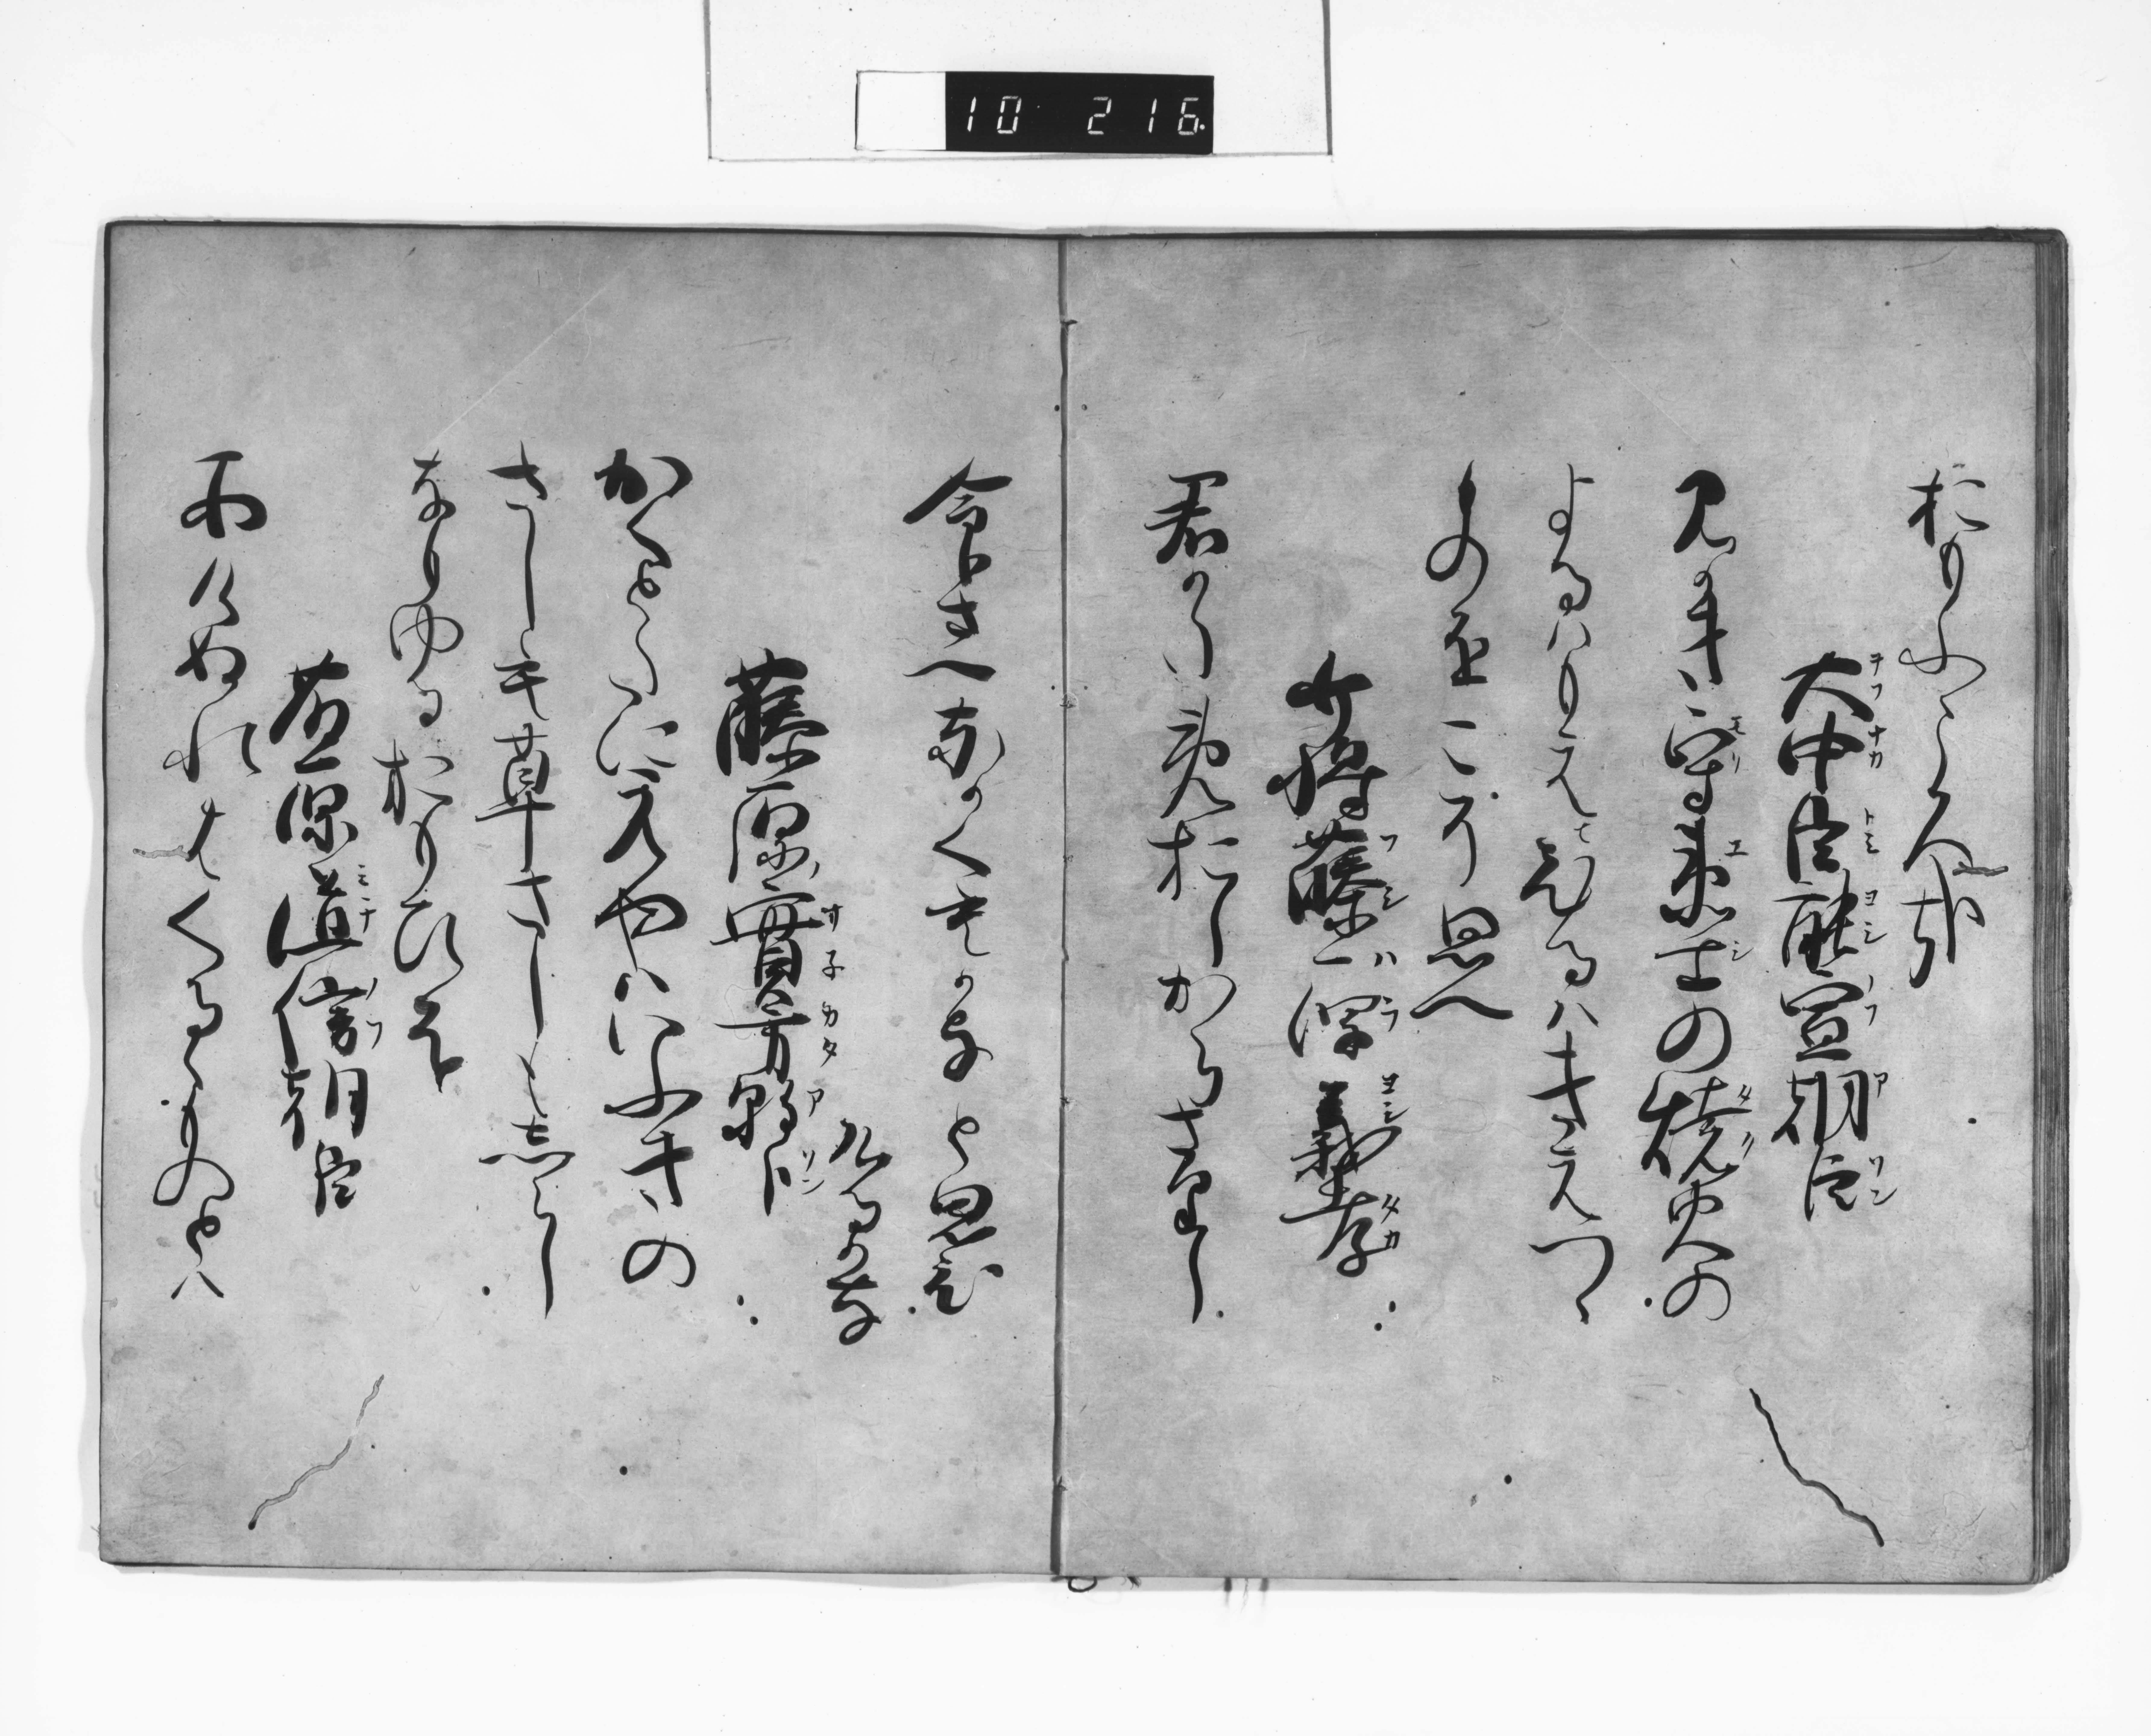 10 216
おもふころ哉
大中臣能宣朝臣
みかき守衛士の焼火の
よるはもえひるはきえつゝ
ものをこそ思へ
少将藤原義孝
君かため おしからさりし
命さへなかくもかなと思ひ
けるかな
藤原實方朝臣
かくとたにえやはいふきの
さしも草さしもしらし
なもゆるおもひを
藤原道信朝臣
あけぬれはくるゝものとは